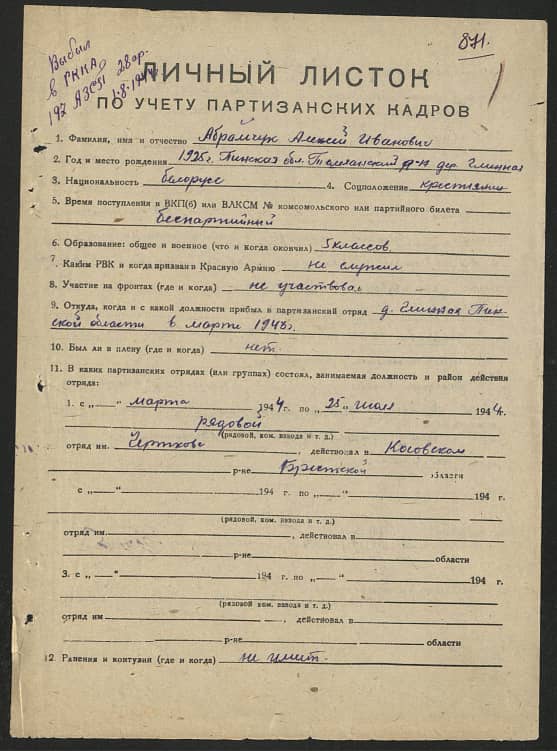 871.
Выбыл
в РККА
197 АЗСП 28 ар.
1-8-1944
ЛИЧНЫЙ ЛИСТОК
ПО УЧЕТУ ПАРТИЗАНСКИХ КАДРОВ
1. Фамилия, имя и отчество Абрамчук Алексей Иванович
2. Год и место рождения 1925г. Пинская обл. Телеханский р-н дер. Глинная
3. Национальность белорусс 4. Соцположение крестьянин
5. Время поступления в ВКП(б) или ВЛКСМ № комсомольского или партийного билета
беспартийный
6. Образование: общее и военное (что и когда окончил) 5 классов
7. Каким РВК и когда призван в Красную Армию не служил
8. Участие на фронтах (где и когда) не участвовал
9. Откуда, когда и с какой должности прибыл в партизанский отряд д. Глинная Пин-
ской области в марте
10. Был ли в плену (где и когда) нет.
11. В каких партизанских отрядах (или группах) состоял, занимаемая должность и район действия
отряда:
1. с „ “ марта 1944 г. по „25“ июля 1944 г.
рядовой
(рядовой, ком. взвода и т. д.)
отряд им. Черткова, действовал в Косовском
р-не Брестской области
с „ “ 194 г. по „ “ 194 г.
(рядовой, ком. взвода и т. д.)
отряд им. , действовал в
р-не области
3. с „ “ 194 г. по „ “ 194 г.
(рядовой, ком. взвода и т. д.)
отряд им. , действовал в
р-не области
12. Ранения и контузии (где и когда) не имеет.